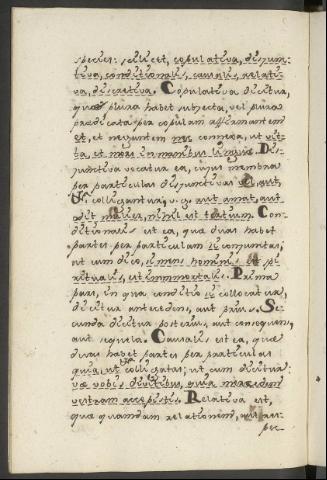 species: scilicet, copulativa, disjunc-
tiva, conditionalis, causalis, relati-
va, discretiva. Copulativa dicitur,
quæ plura habet subjecta, vel plura
prædicata per copulam affirmantem
et, et negantem nec connexa, ut vi-
ta, et mors in manibus linguæ. Dis-
junctiva vocatur ea, cujus membra
per particulas disjunctivas vel, aut,
colligantur, v. g. aut amat, aut
odit mulier, nihil est tertium. Con-
ditionalis est ea, quæ duas habet
partes per particulam si conjunctas;
ut cum dico, si mens hominis est spi-
ritualis, est immortalis. Prima
pars, in qua conditio si collocatur,
dicitur antecedens, aut prius. Se-
cunda dicitur posterius, aut consequens,
aut sequela. Causalis est ea, quæ
duas habet partes per particulas
quia, ut colligatas; ut cum dicitur:
væ vobis divitibus, quia mercedem
vestram accepistis. Relativa est,
quæ quamdam relationem, aut res-
pec-